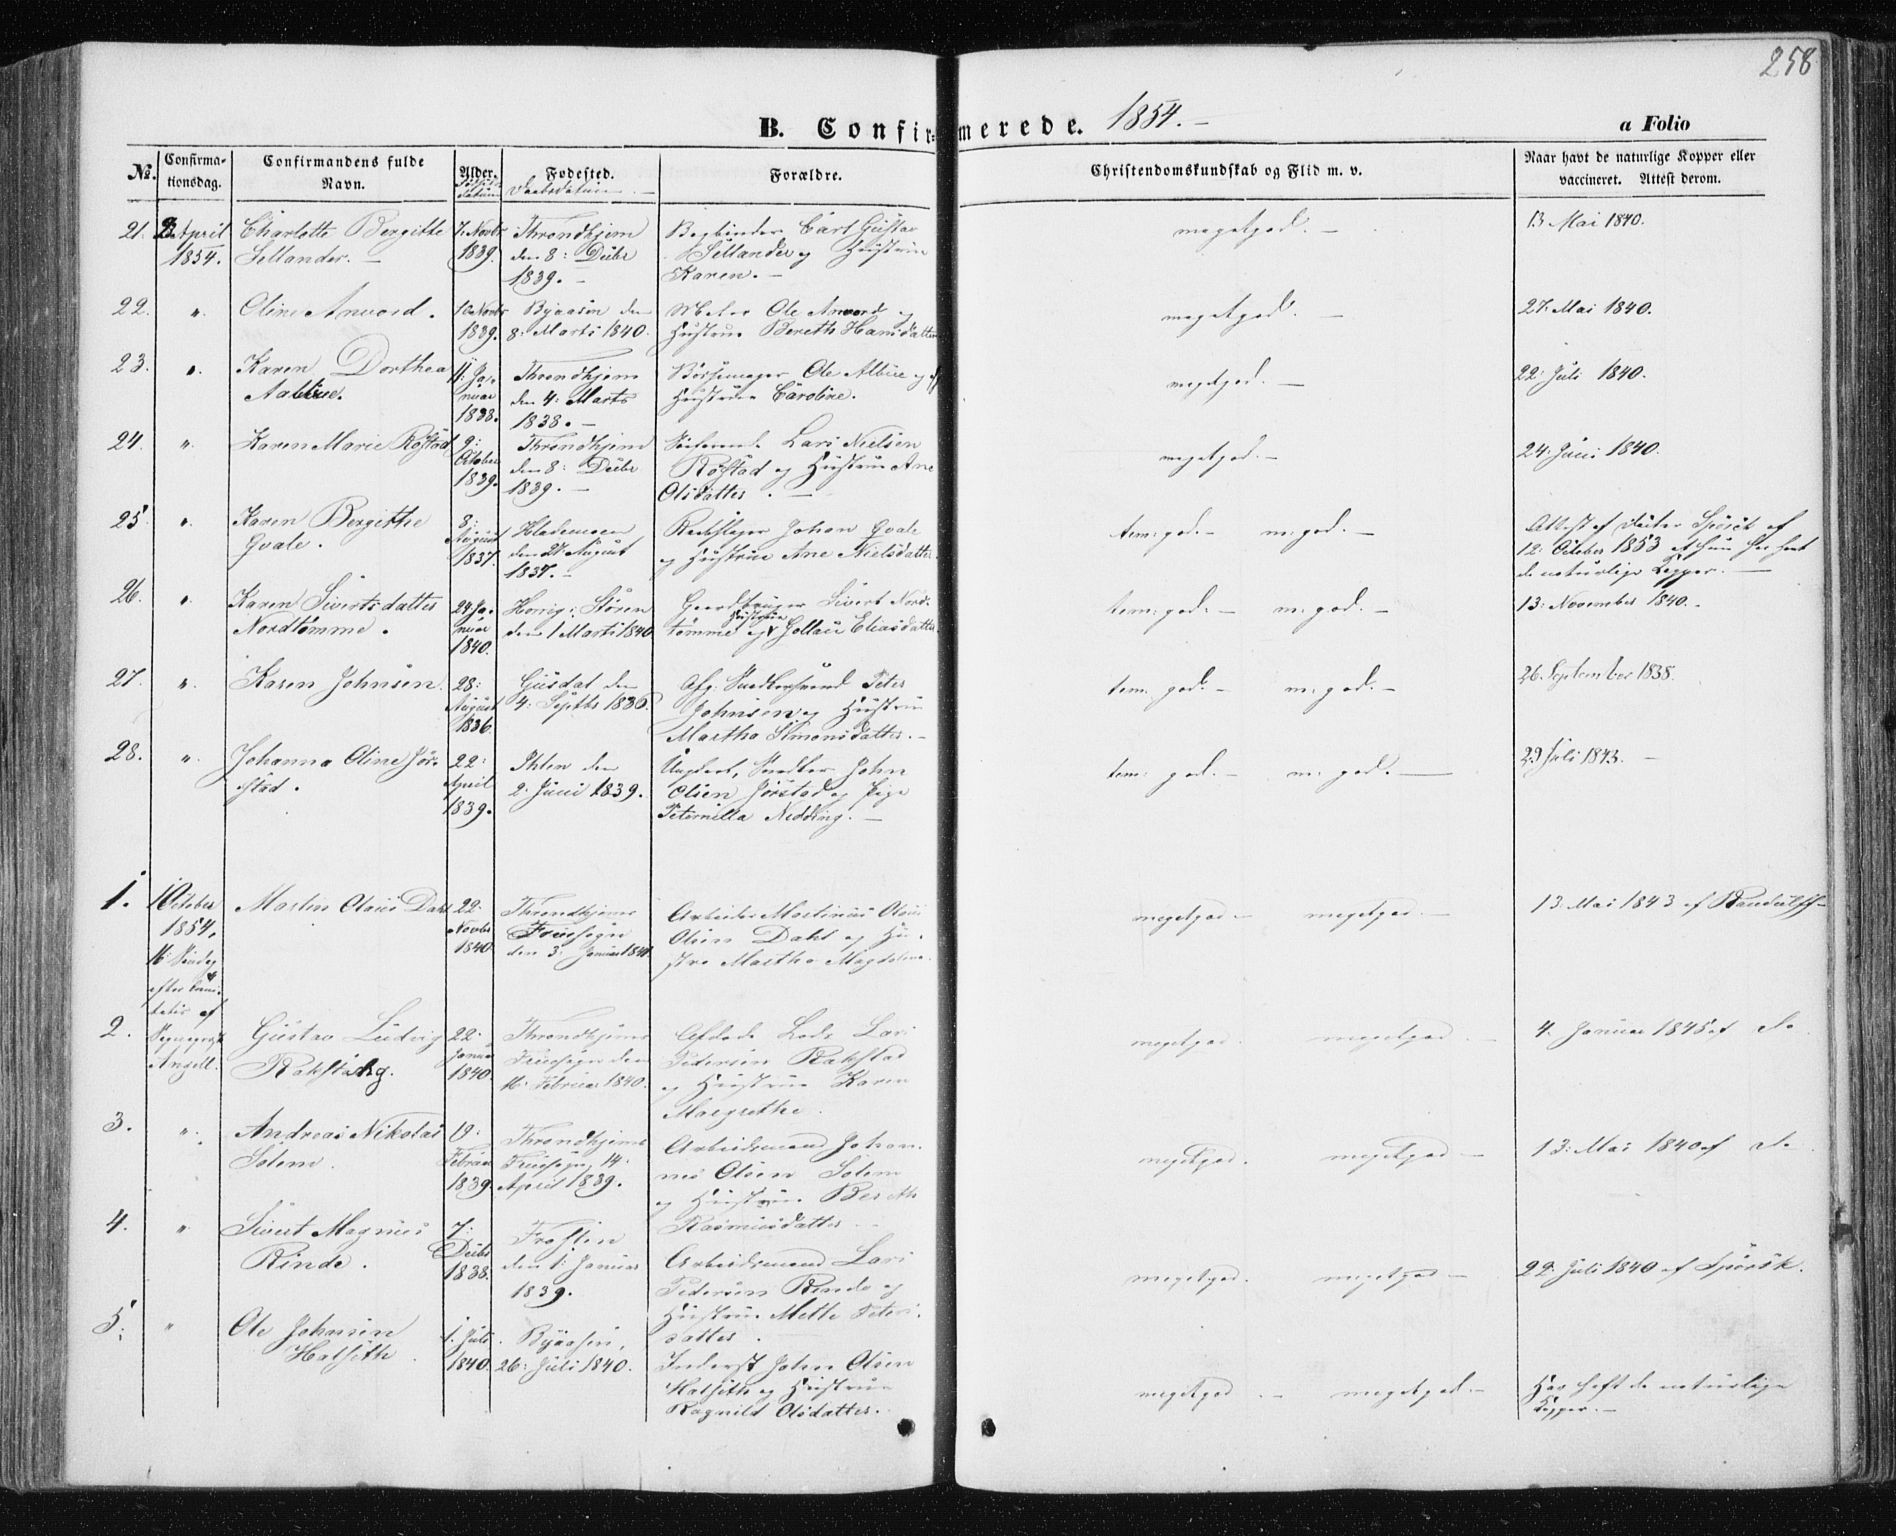 258
B. Confirmerede. 1854.
a Folio
No.
Confirmationsdag.
Confirmandens fulde Navn.
Alder.
Fødested.
Forældre.
Christendomskundskab og Flid m. v.
Naar havt de naturlige Kopper eller vaccineret. Attest derom.
21. April 1854.
Charlotte Bergitte Sellander.
7. Novbr 1839.
Throndhjem den 8: Decbr 1839.
Bogbinder Carl Gustav Sellander og Hustrue Karen.
megetgod.
13 Mai 1840.
22. "
Oline Anvord.
10 Novbr 1839.
Byaasen den 8: Marts 1840.
Ole Anvord og Hustrue Bereth Hansdatter
megetgod.
27. Mai 1840.
23. "
Karen Dorthea Aalbue.
11: Januar 1838.
Throndhjem den 4: Marts 1838.
Børsemager Ole Albue og Hustrue Caroline.
megetgod.
22: Juli 1840.
24. "
Karen Marie Røstad
9: October 1839.
Throndhjem den 8: Decbr 1839.
Lars Nielsen Røstad og Hustrue Ane Olsdatter.
megetgod.
24: Juni 1840.
25. "
Karen Bergithe Qvale.
8: August 1837.
Hlademoen den 27 August 1837.
Johan Qvale og Hustrue Ane Nielsdatter
tem: god. m: god.
Attest af Spørck af 12: October 1853 at hun har havt de naturlige Kopper.
26. "
Karen Sivertsdatter Nordtømme.
24 Januar 1840.
Horrig i Støren den 1 Marts 1840
Gaardbruger Sivert Nordtømme og Hustrue Gollau Eliasdatter
tem: god. m: god.
13: November 1840.
27. "
Karen Johnsen.
28: August 1836.
den 4: Septbr 1836.
Afg: Peter Johnsen og Hustrue Martha Simonsdatter.
tem: god. m: god.
26. September 1838.
28. "
Johanna Oline Jørstad.
22: April 1839.
Ihlen den 2: Juni 1839.
Ungkarl, Snedker John Olsen Jørstad og Pige Peternilla Nidding.
tem: god. m: god.
29 Juli 1843.
1. 1 October 1854. 16: Søndag efter Trinitatis af Sogneprest Angell.
Martin Olaus Dahl
22: Novbr 1840
Throndhjems Fruesogn den 3: Januar 1841
Arbeider Martinus Olaus Olsen Dahl og Hustru Martha Magdalene.
megetgod megetgod.
13: Mai 1843 af
2.
Gustav Ludvig Rakstang.
22: Januar 1840
Throndhjems Fruesogn den 16: Februar 1840.
Afdøde Lods Lars Pedersen Rakstad og Hustrue Karen Margrethe.
megetgod. megetgod
4. Januar 1845 af do
3. "
Andreas Nikolai Solem.
19: Februar 1839
Throndhjems Fruesogn 14: April 1839.
Arbeidsmand Johannes Olsen Solem og Hustrue Bereth Rasmusdatter
megetgod. megetgod
13: Mai 1840 af do
4. "
Sivert Magnus Rinde.
7: Decbr 1838.
Frosten den 1: Januar 1839.
Arbeidsmand Lars Pedersen Rinde og Hustrue Mette Petersdatter.
megetgod. megetgod
22: Juli 1840 af Spørck.
5. "
Ole Johnsen Halseth
1. Juli 1840.
Byaasen, 26: Juli 1840.
Inderst John Olsen Halseth og Hustrue Ragnild Olsdatter.
megetgod megetgod.
Har haft de naturlige Kopper.